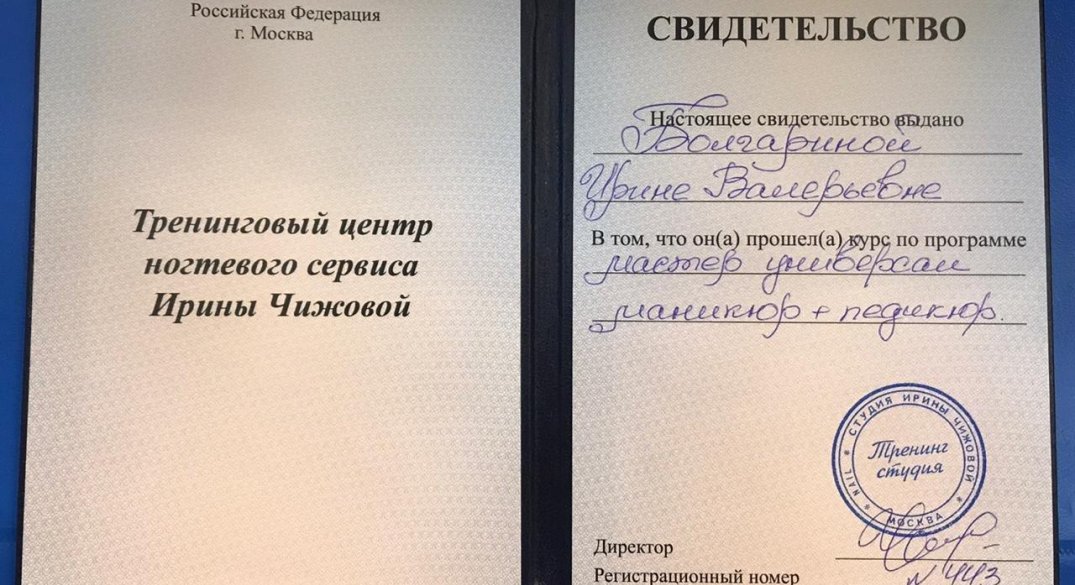 Российская Федерация
г. Москва
Тренинговый центр
ногтевого сервиса
Ирины Чижовой
СВИДЕТЕЛЬСТВО
Настоящее свидетельство выдано
Болгариной
Ирине Валерьевне
В том, что он(а) прошел(а) курс по программе
мастер универсал
маникюр + педикюр.
* СТУДИЯ ИРИНЫ ЧИЖОВОЙ * МОСКВА * NAIL
Тренинг
студия
Директор
Регистрационный номер N 443